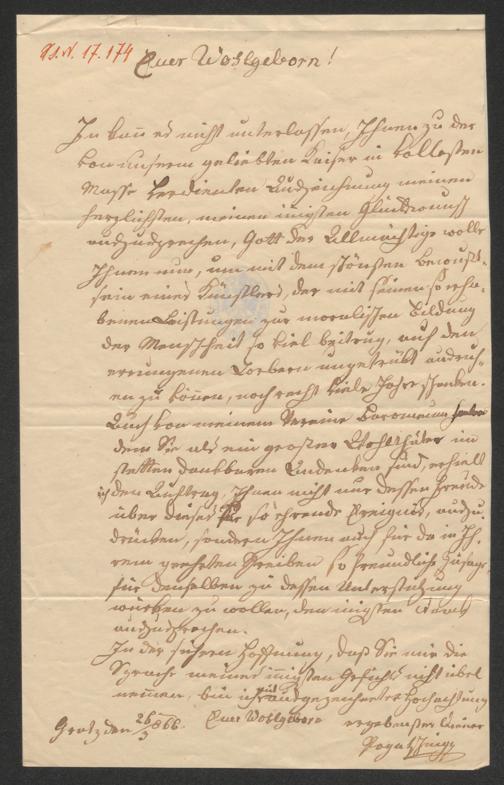 A. N. 17.174
Euer Wohlgeborn!
Ich kann es nicht unterlassen, Ihnen zu der
von unserm geliebten Kaiser in vollesten
Masse verdienten Auszeichnung meinen
herzlichsten, meinen innigsten Glückwunsch
auszusprechen, Gott der Allmächtige wolle
Ihnen nun, um mit dem schönsten Bewußt-
sein eines Künstlers, der mit seinen so erha-
benen Leistungen zur moralischen Bildung
der Menschheit so viel beitrug, auf den
errungenen Lorbern ungetrübt ausruh-
en zu können, noch recht viele Jahre schenken.
Auch von meinem Vereine Caromäum
dem Sie als ein groster Wohlthäter im
stetten dankbaren Andenken sind, erhielt
ich den Auftrag, Ihnen nicht nur dessen Freude
über dieses so ehrende Ereignis, auszu-
drücken, sondern Ihnen auch für die in Ih-
rem geehrten Schreiben so freundliche Zusage
für denselben zu dessen Unterstützung
wirken zu wollen, den innigsten Dank
auszusprechen.
In der sichern Hoffnung, daß Sie mir die
Sprache meines innigsten Gefühls nicht übel
nemmen, bin ich mit ausgezeichneter Hochachtung
Gratz den 26/3 866. Euer Wohlgeborn ergebenster Diener